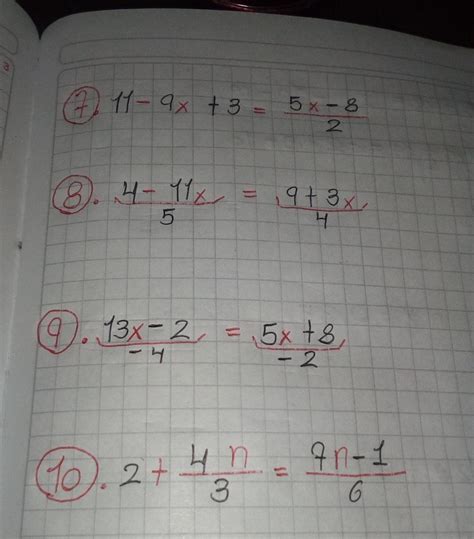 3
7. 11 - 9x + 3 = (5x - 8)/2
8. (4 - 11x)/5 = (9 + 3x)/4
9. (13x - 2)/-4 = (5x + 8)/-2
10. 2 + 4n/3 = (7n - 1)/6